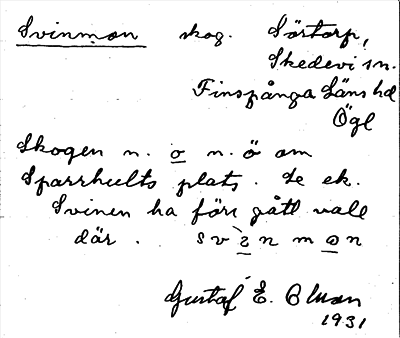 Svinmon skog. Sörtorp,
Skedevi sn.
Finspånga Läns hd
Ögl
Skogen n. o n. ö om
Sparrhults plats. Se ek.
Svinen ha förr gått vall
där. svinmon
Gustaf E. Olson
1931